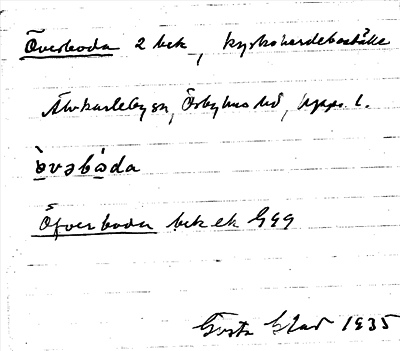 Överboda 2 bek, kyrkoherdeboställe
Älvkarleby sn, Örbyhus hd, Upps. l.
òvəbòda
Öfverboda bek ek GEG
Gösta Elad 1935